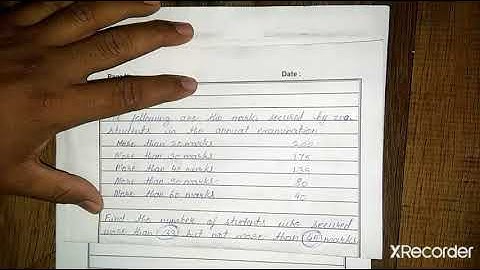 Date :
following are the marks secured by 200
students in the annual examination
More than 20 marks 200
More than 30 marks 175
More than 40 marks 135
More than 50 marks 80
More than 60 marks 40
Find the number of students who secured
more than but not more than marks
XRecorder